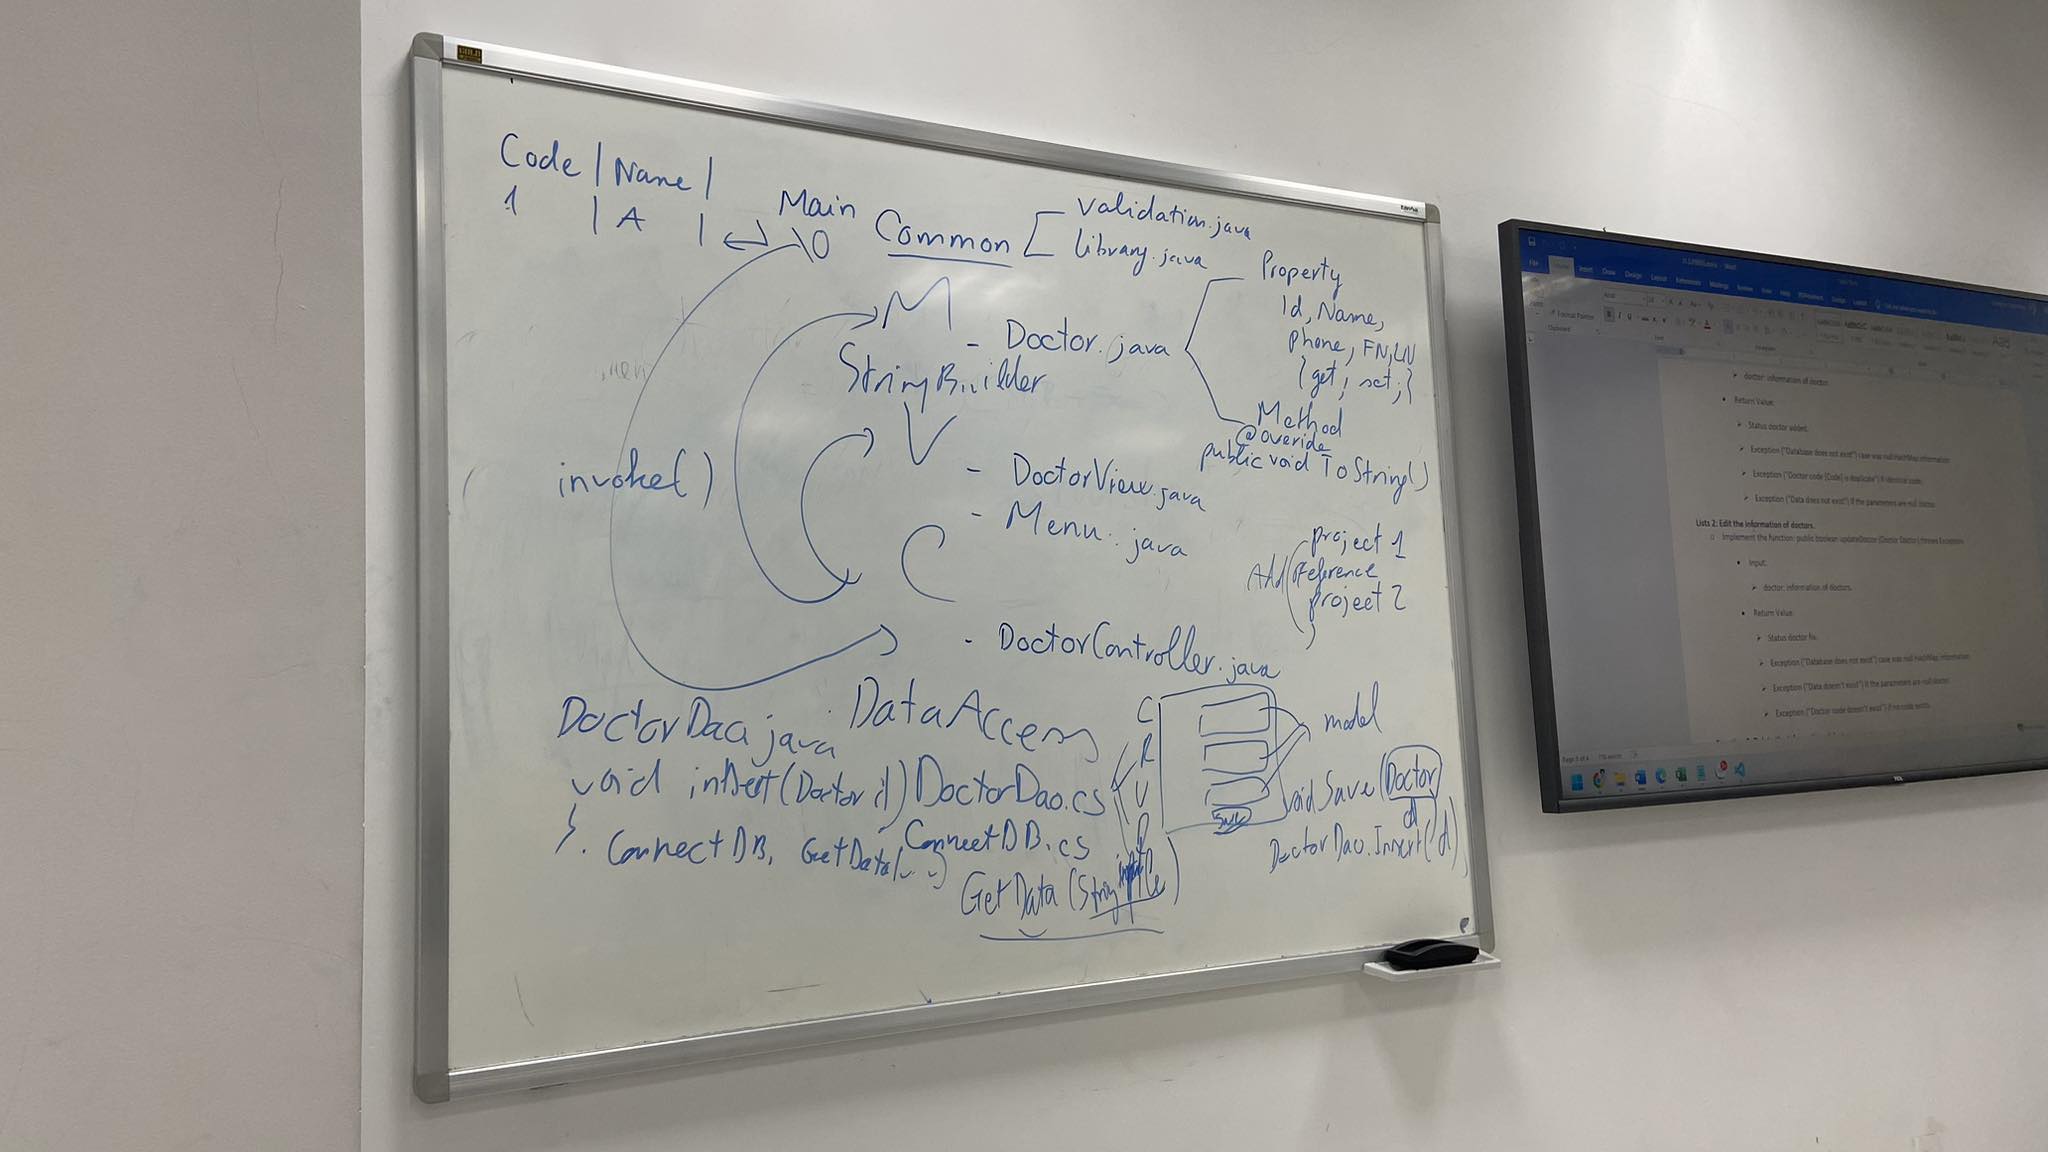 Code | Name |
1 | A |
Main
Common
validation.java
library.java
M
- Doctor.java
StringBuilder
Property
Id, Name,
phone, FN, LN
{ get; set; }
Method
@overide
public void ToString()
V
- DoctorView.java
- Menu.java
invoke()
C
- DoctorController.java
project 1
Add reference
project 2
DataAccess
DoctorDao.java
void insert(Doctor d)
{
ConnectDB, GetData(...)
DoctorDao.cs
ConnectDB.cs
GetData(String
C
R
U
D
model
void Save(Doctor d)
DoctorDao.Insert(d)
doctor: information of doctor.
Return Value:
Status doctor added.
Exception ("Database does not exist") case was null HashMap information
Exception ("Doctor code [Code] is duplicate") if identical code.
Exception ("Data does not exist") if the parameters are null doctor
Lists 2: Edit the information of doctors.
Implement the function: public boolean updateDoctor (Doctor Doctor) throws Exception
Input:
doctor: information of doctors.
Return Value:
Status doctor fix.
Exception ("Database does not exist") case was null HashMap information
Exception ("Data doesn't exist") if the parameters are null doctor
Exception ("Doctor code doesn't exist") if no code exists
TCL